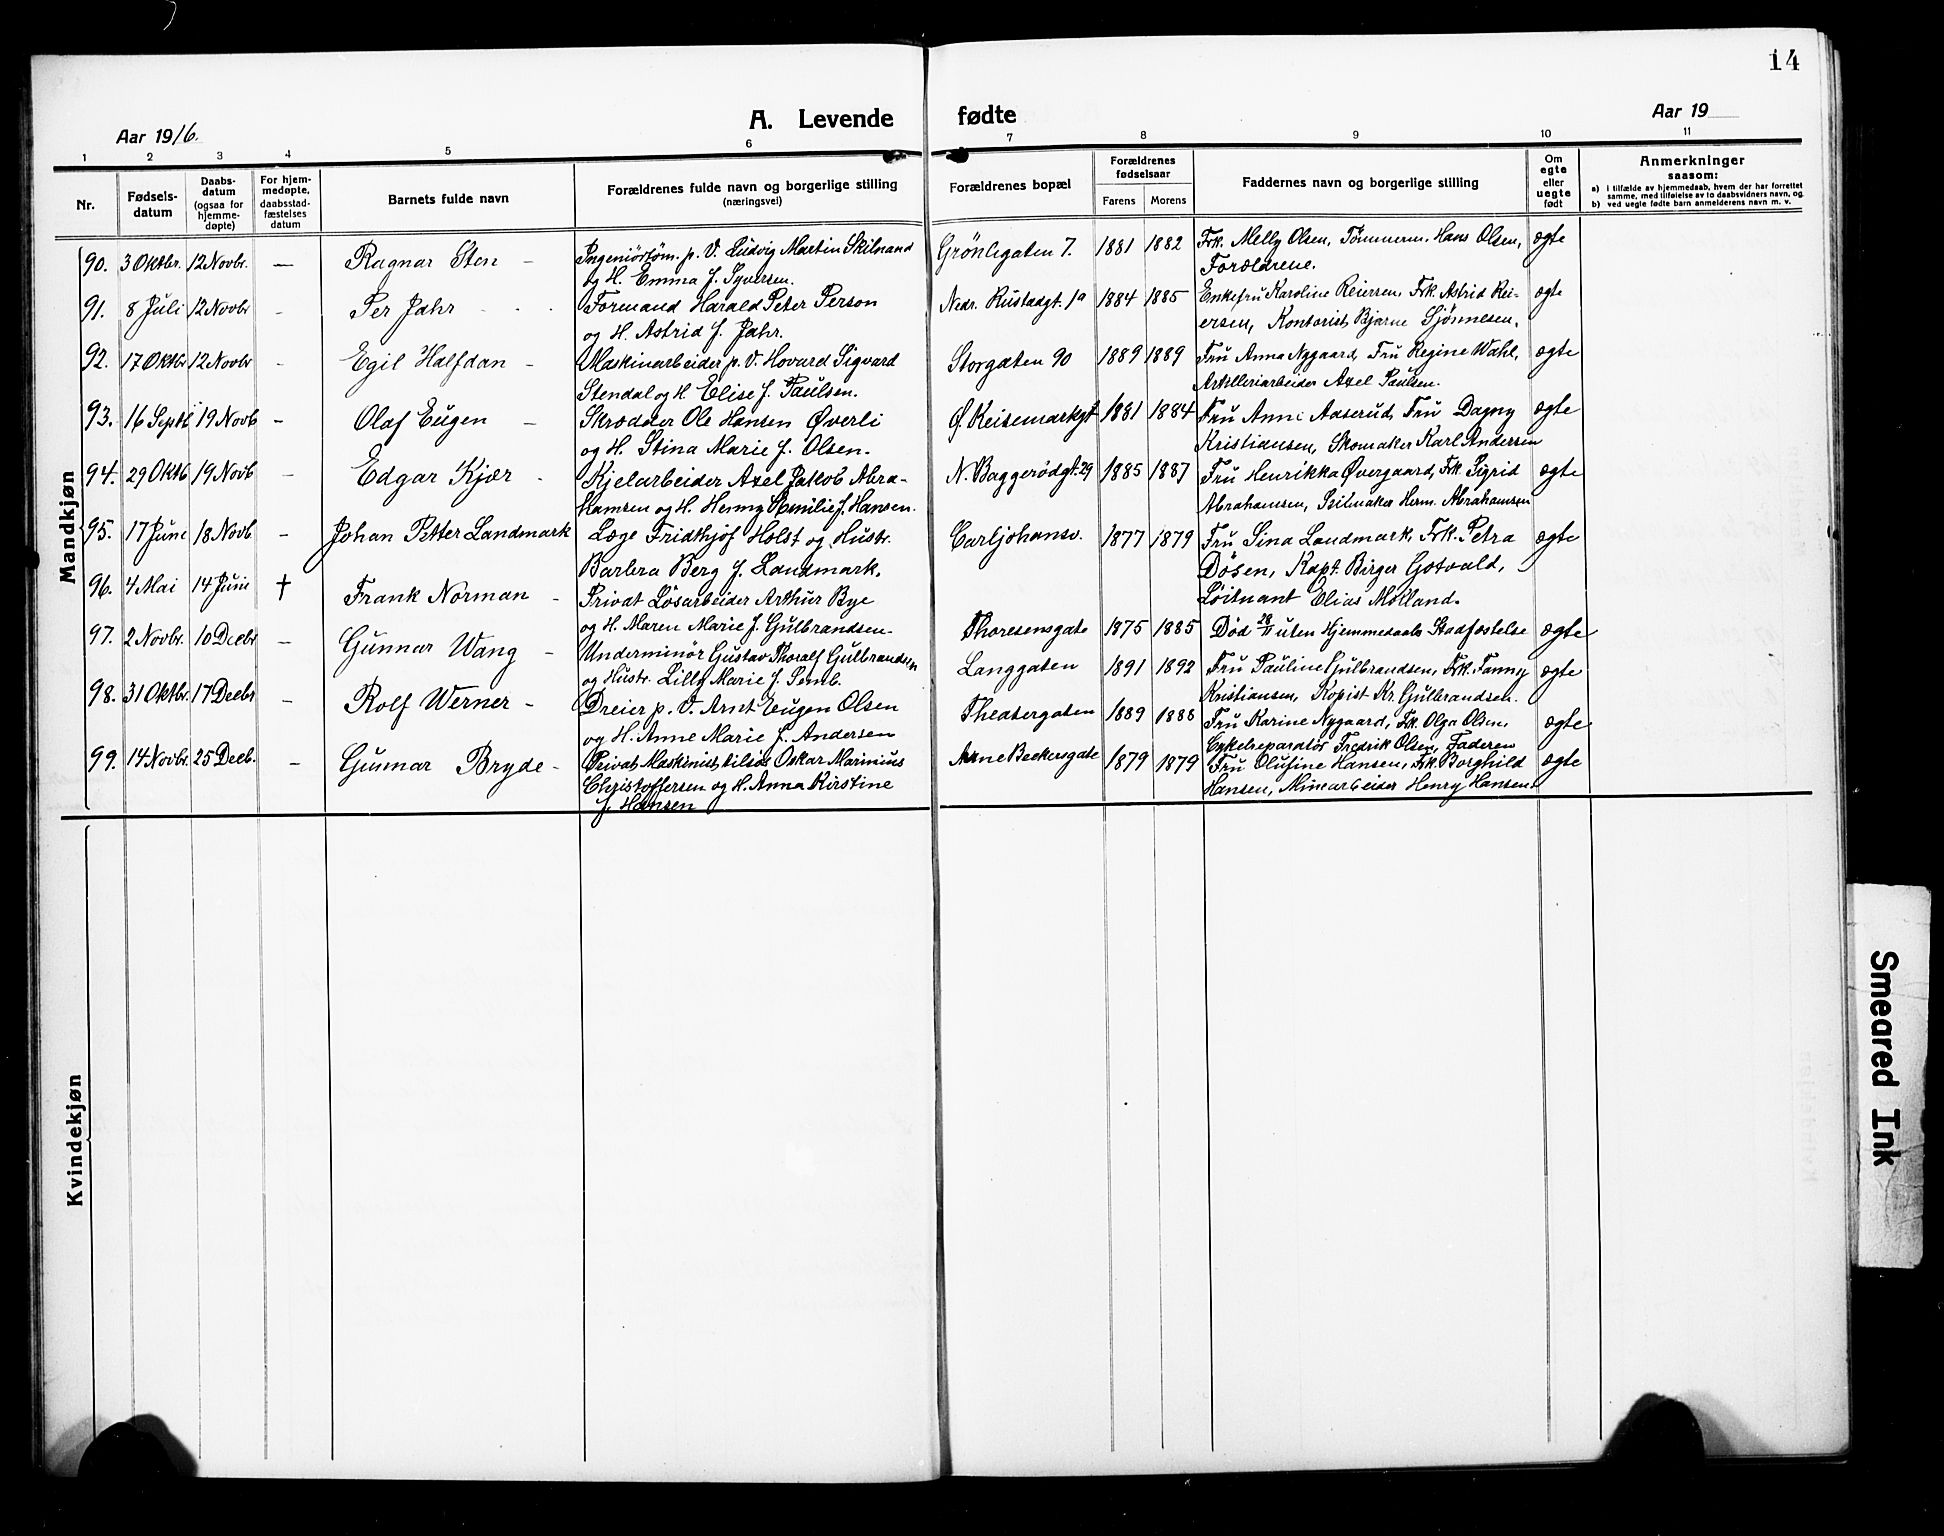 14
Aar 1916.
A. Levende fødte
Aar 19
1 2 3 4 5 6 7 8 9 10 11
Nr.
Fødsels-
datum
Daabs-
datum
(ogsaa for
hjemme-
døpte)
For hjem-
medøpte,
daabsstad-
fæstelses
datum
Barnets fulde navn
Forældrenes fulde navn og borgerlige stilling
(næringsvei)
Forældrenes bopæl
Forældrenes
fødselsaar
Farens Morens
Faddernes navn og borgerlige stilling
Om
egte
eller
uegte
født
Anmerkninger
saasom:
a) i tilfælde av hjemmedaab, hvem der har forrettet
samme, med tilføielse av to daabsvidners navn, og
b) ved uegte fødte barn anmelderens navn m. v.
Mandkjøn
90. 3 Oktbr. 12 Novbr. — Ragnar Sten – Ingeniörtöm. p. V. Ludvig Martin Skilnand Grönligaten 7. 1881 1882 Frk. Melly Olsen, Tömmerm. Hans Olsen, ægte
og H. Emma f. Syversen. Forældrene.
91. 8 Juli 12 Novbr - Per Jahr - Formand Harald Peter Person Nedr. Rustadgt. 1a 1884 1885 Enkefru Karoline Reiersen, Frk. Astrid Rei- ægte
og H. Astrid f. Jahr. ersen, Kontorist Bjarne Sjönnesen.
92. 17 Oktbr 12 Novbr - Egil Halfdan – Maskinarbeider p. V. Hovard Sigvard Storgaten 90 1889 1889 Fru Anna Nygaard, Fru Regine Wahl, ægte
Stendal og H Elise f. Paulsen. Artilleriarbeider Axel Paulsen.
93. 16 Septb 19 Novb – Olaf Eugen – Skrædder Ole Hansen Øverli Ø. Keisemarkgt 1881 1884 Fru Anne Aaserud, Fru Dagny ægte
og H. Stina Marie f. Olsen. Kristiansen, Skomaker Karl Andersen
94. 29 Oktb 19 Novb – Edgar Kjær - Kjelarbeider Axel Jakob Abra- N. Baggerödgt. 29 1885 1887 Fru Henrikka Øvergaard, Frk. Sigrid ægte
hamsen og H. Henny Emilie f. Hansen. Abrahamsen, Seilmaker Herm. Abrahamsen
95. 17 Juni 18 Novb – Johan Petter Landmark Læge Fridthjof Holst og Hustr. Carljohansv. 1877 1879 Fru Sina Landmark, Frk. Petra ægte
Barbra Berg f. Landmark. Døsen, Kapt. Birger Gotvald,
96. 4 Mai 14 Juni † Frank Norman – Privat Løsarbeider Arthur Bye Løitnant Elias Molland.
og H. Maren Marie f. Gulbrandsen- Thoresensgate 1875 1885 Død 28/11 uten Hjemmedaabs Stadfæstelse ægte
97. 2 Novbr. 10 Decbr – Gunnar Wang – Underminör Gustav Thoralf Gulbrandsen Langgaten 1891 1892 Fru Pauline Gulbrandsen, Frk. Fanny ægte
og Hustr. Lilly Marie f. Semb. Kristiansen, Kopist Kr. Gulbrandsen.
98. 31 Oktbr. 17 Decbr – Rolf Werner – Dreier p. V. Arnt Eugen Olsen Theatergaten 1889 1888 Fru Karine Nygaard, Frk. Olga Olsen, ægte
og H. Anne Marie f. Andersen Cykelreparatør Fredrik Olsen, Faderen
99. 14 Novbr. 25 Decb. – Gunnar Bryde – Privat Maskinist tilsøs Oskar Marinius Arne Beckersgate 1879 1879 Fru Olufine Hansen, Frk. Borghild ægte
Christoffersen og H. Anna Kirstine Hansen, Minearbeider Henry Hansen.
f. Hansen
Kvindekjøn
Smeared Ink